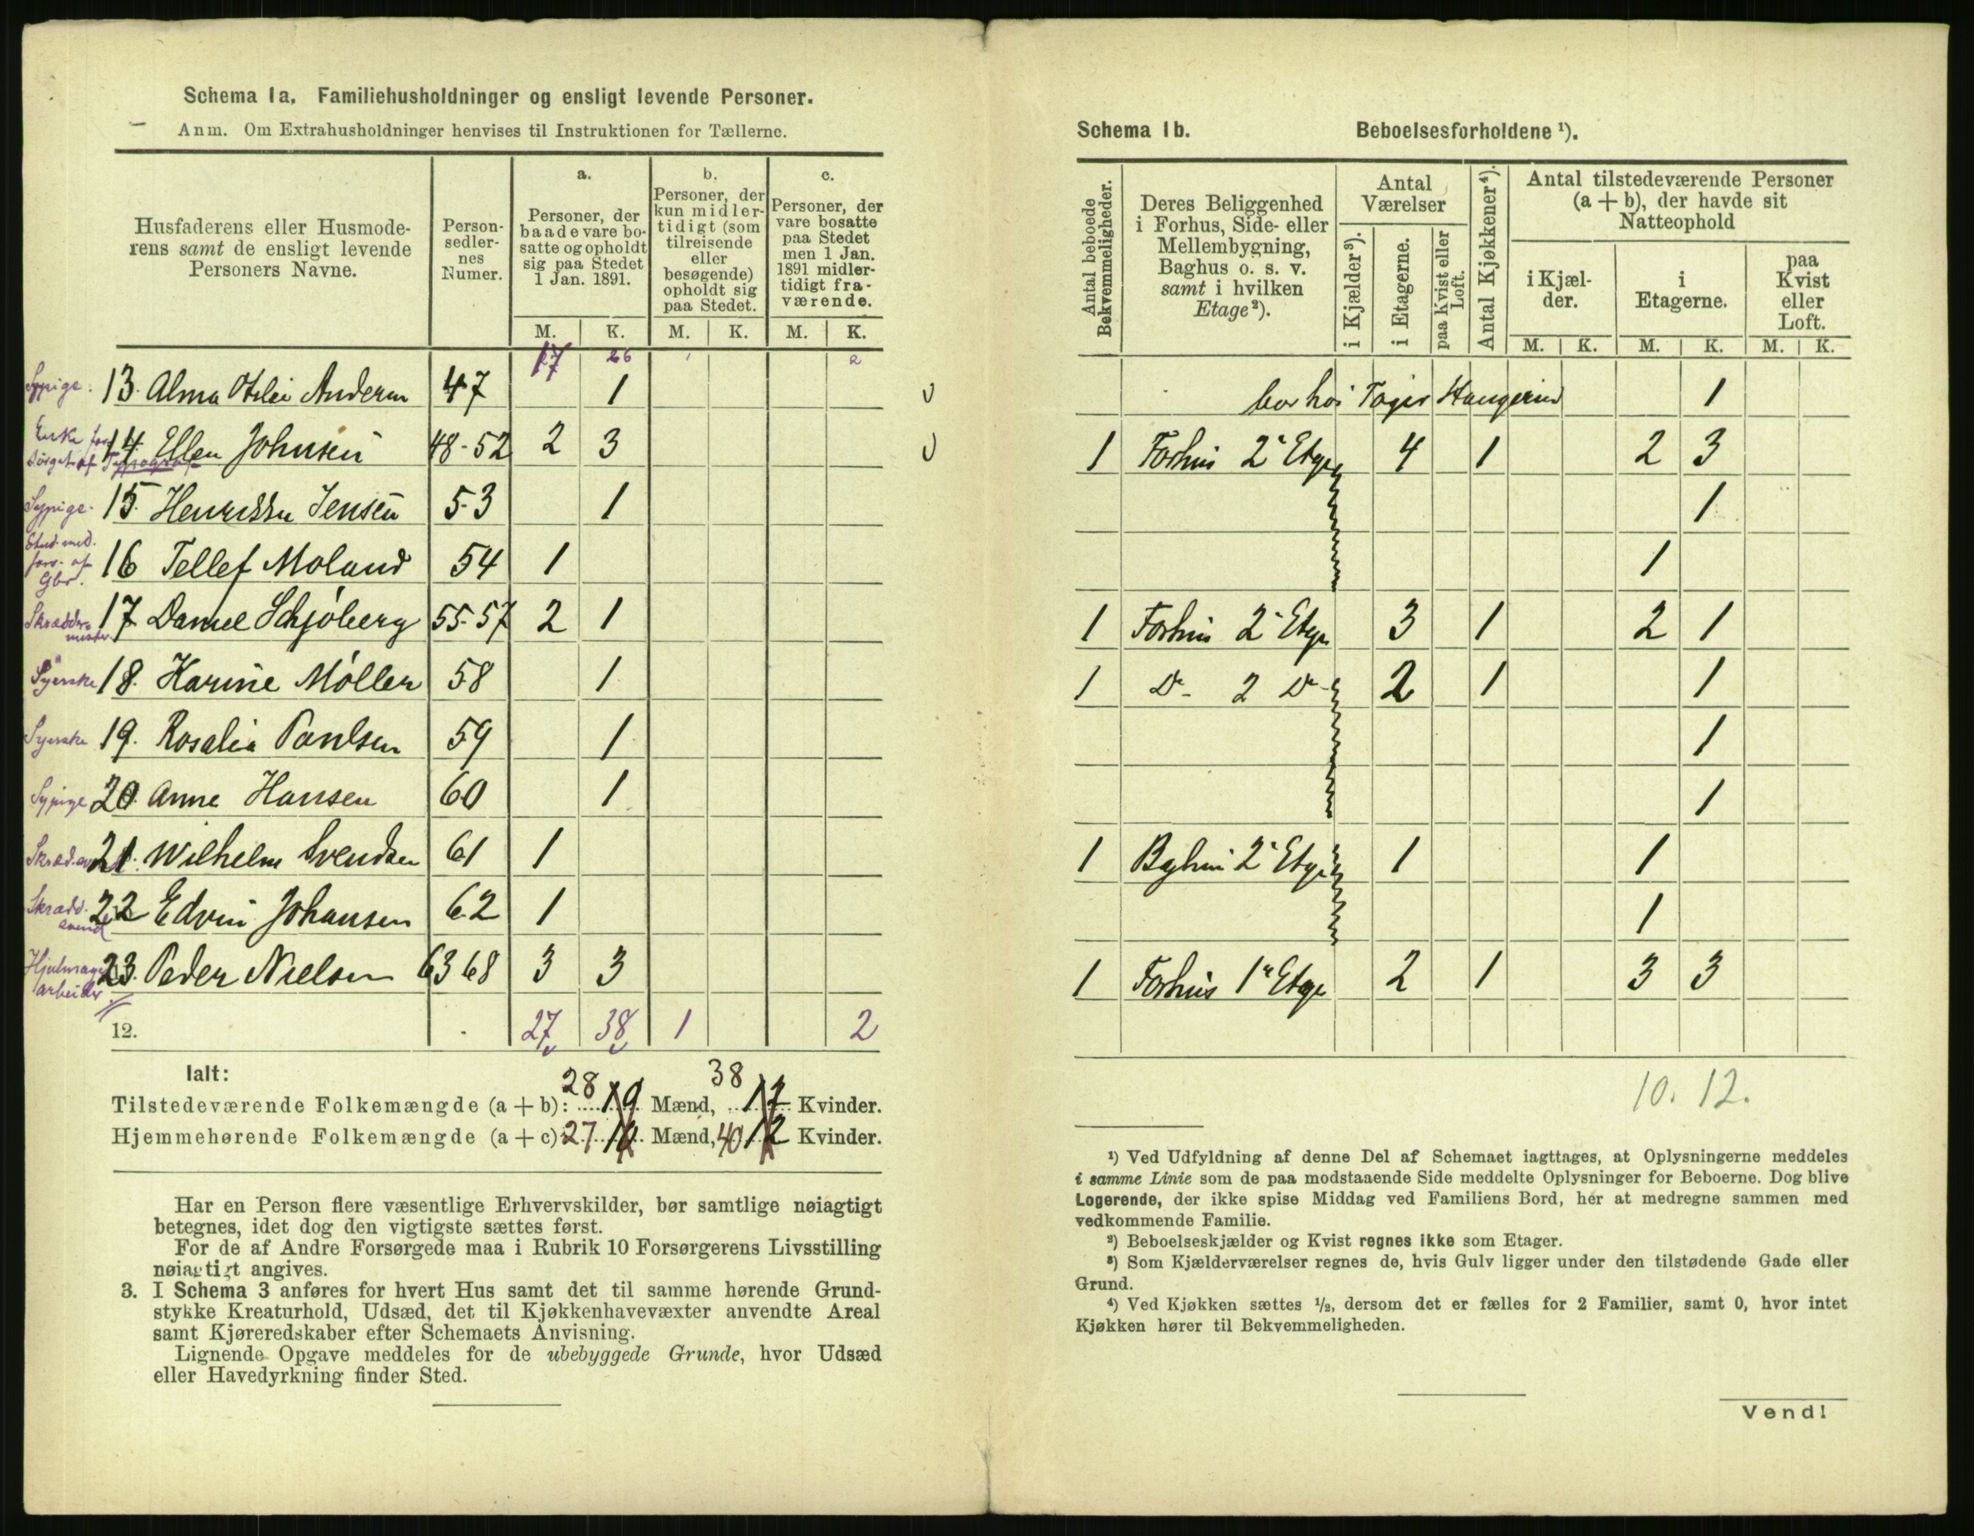 Schema 1a. Familiehusholdninger og ensligt levende Personer.
Anm. Om Extrahusholdninger henvises til Instruktionen for Tællerne.
Husfaderens eller Husmode-
rens samt de ensligt levende
Personers Navne.
Person-
sedler-
nes
Numer.
a.
Personer, der
baade vare bo-
satte og opholdt
sig paa Stedet
1 Jan. 1891.
b.
Personer, der
kun midler-
tidigt (som
tilreisende
eller
besøgende)
opholdt sig
paa Stedet.
c.
Personer, der
vare bosatte
paa Stedet
men 1 Jan.
1891 midler-
tidigt fra-
værende.
M. K. M. K. M. K.
17 26 1 2
Sypige. 13. Alma Otilie Andersen 47 1
Enke forsørget af Typograf 14. Ellen Johnsen 48-52 2 3
Sypige. 15. Henrikke Jensen 53 1
Stud. med. fors. af Gbr. 16 Tellef Moland 54 1
Skræddermester 17 Daniel Schjøberg 55-57 2 1
Syerske 18. Karine Møller 58 1
Syerske 19. Rosalia Paulsen 59 1
Sypige 20. Anne Hansen 60 1
21. Wilhelm Svendsen 61 1
Skrædd. svend 22 Edvin Johansen 62 1
Hjulmager arbeider 23. Peder Nielsen 63 68 3 3
12. 27 38 1 2
Ialt:
Tilstedeværende Folkemængde (a + b): 28 Mænd, 38 Kvinder.
Hjemmehørende Folkemængde (a + c): 27 Mænd, 40 Kvinder.
Har en Person flere væsentlige Erhvervskilder, bør samtlige nøiagtigt
betegnes, idet dog den vigtigste sættes først.
For de af Andre Forsørgede maa i Rubrik 10 Forsørgerens Livsstilling
nøiagtigt angives.
3. I Schema 3 anføres for hvert Hus samt det til samme hørende Grund-
stykke Kreaturhold, Udsæd, det til Kjøkkenhavevæxter anvendte Areal
samt Kjøreredskaber efter Schemaets Anvisning.
Lignende Opgave meddeles for de ubebyggede Grunde, hvor Udsæd
eller Havedyrkning finder Sted.
Schema 1b. Beboelsesforholdene ¹).
Antal beboede
Bekvemmeligheder.
Deres Beliggenhed
i Forhus, Side- eller
Mellembygning,
Baghus o. s. v.
samt i hvilken
Etage²).
Antal
Værelser
i Kjælder³).
i Etagerne.
paa Kvist eller
Loft.
Antal Kjøkkener⁴).
Antal tilstedeværende Personer
(a + b), der havde sit
Natteophold
i Kjæl-
der.
i
Etagerne.
paa
Kvist
eller
Loft.
M. K. M. K. M. K.
bor hos 1
1 Forhus 2 Etge 4 1 2 3
1
1
1 Forhus 2 Etge 3 1 2 1
1 Do 2 Do 2 1 1
1
1
1 Baghus 2 Etge 1 1
1
1 Forhus 1 Etge 2 1 3 3
10. 12.
¹) Ved Udfyldning af denne Del af Schemaet iagttages, at Oplysningerne meddeles
i samme Linie som de paa modstaaende Side meddelte Oplysninger for Beboerne. Dog blive
Logerende, der ikke spise Middag ved Familiens Bord, her at medregne sammen med
vedkommende Familie.
²) Beboelseskjælder og Kvist regnes ikke som Etager.
³) Som Kjælderværelser regnes de, hvis Gulv ligger under den tilstødende Gade eller
Grund.
⁴) Ved Kjøkken sættes ¹/₂, dersom det er fælles for 2 Familier, samt 0, hvor intet
Kjøkken hører til Bekvemmeligheden.
Vend!